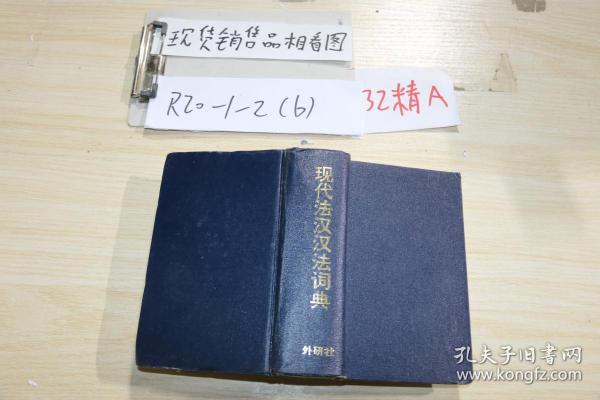 现货销售品相看图
R20-1-2(6)
32精A
现代法汉汉法词典
外研社
孔夫子旧书网
www.kongfz.com